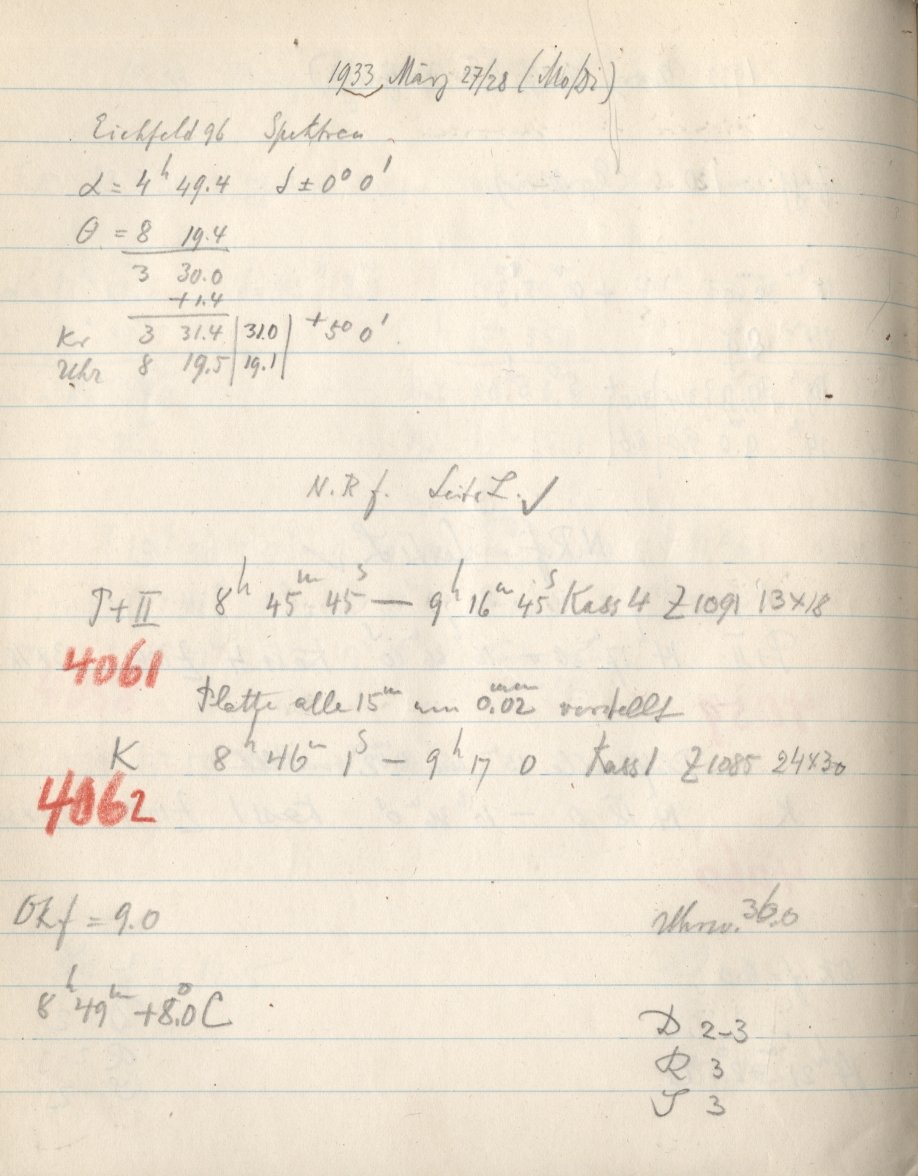 1933 März 27/28 (Mo/Di)
Eichfeld 96 Spektren
α = 4h 49.4 δ ± 0° 0'
θ = 8 19.4
3 30.0
+1.4
Kr 3 31.4 | 31.0 | +5° 0'
Uhr 8 19.5 | 19.1 |
N.R f. Seite L. ✓
T+II 8h 45m 45s — 9h 16m 45s Kass 4 Z 1091 13×18
4061
Platte alle 15m um 0.02mm verstellt
K 8h 46m 1s — 9h 17 0 Kass 1 Z 1085 24×30
4062
Okf = 9.0
Uhrw. 36.0
8h 49m +8.0° C
D 2-3
R 3
J 3